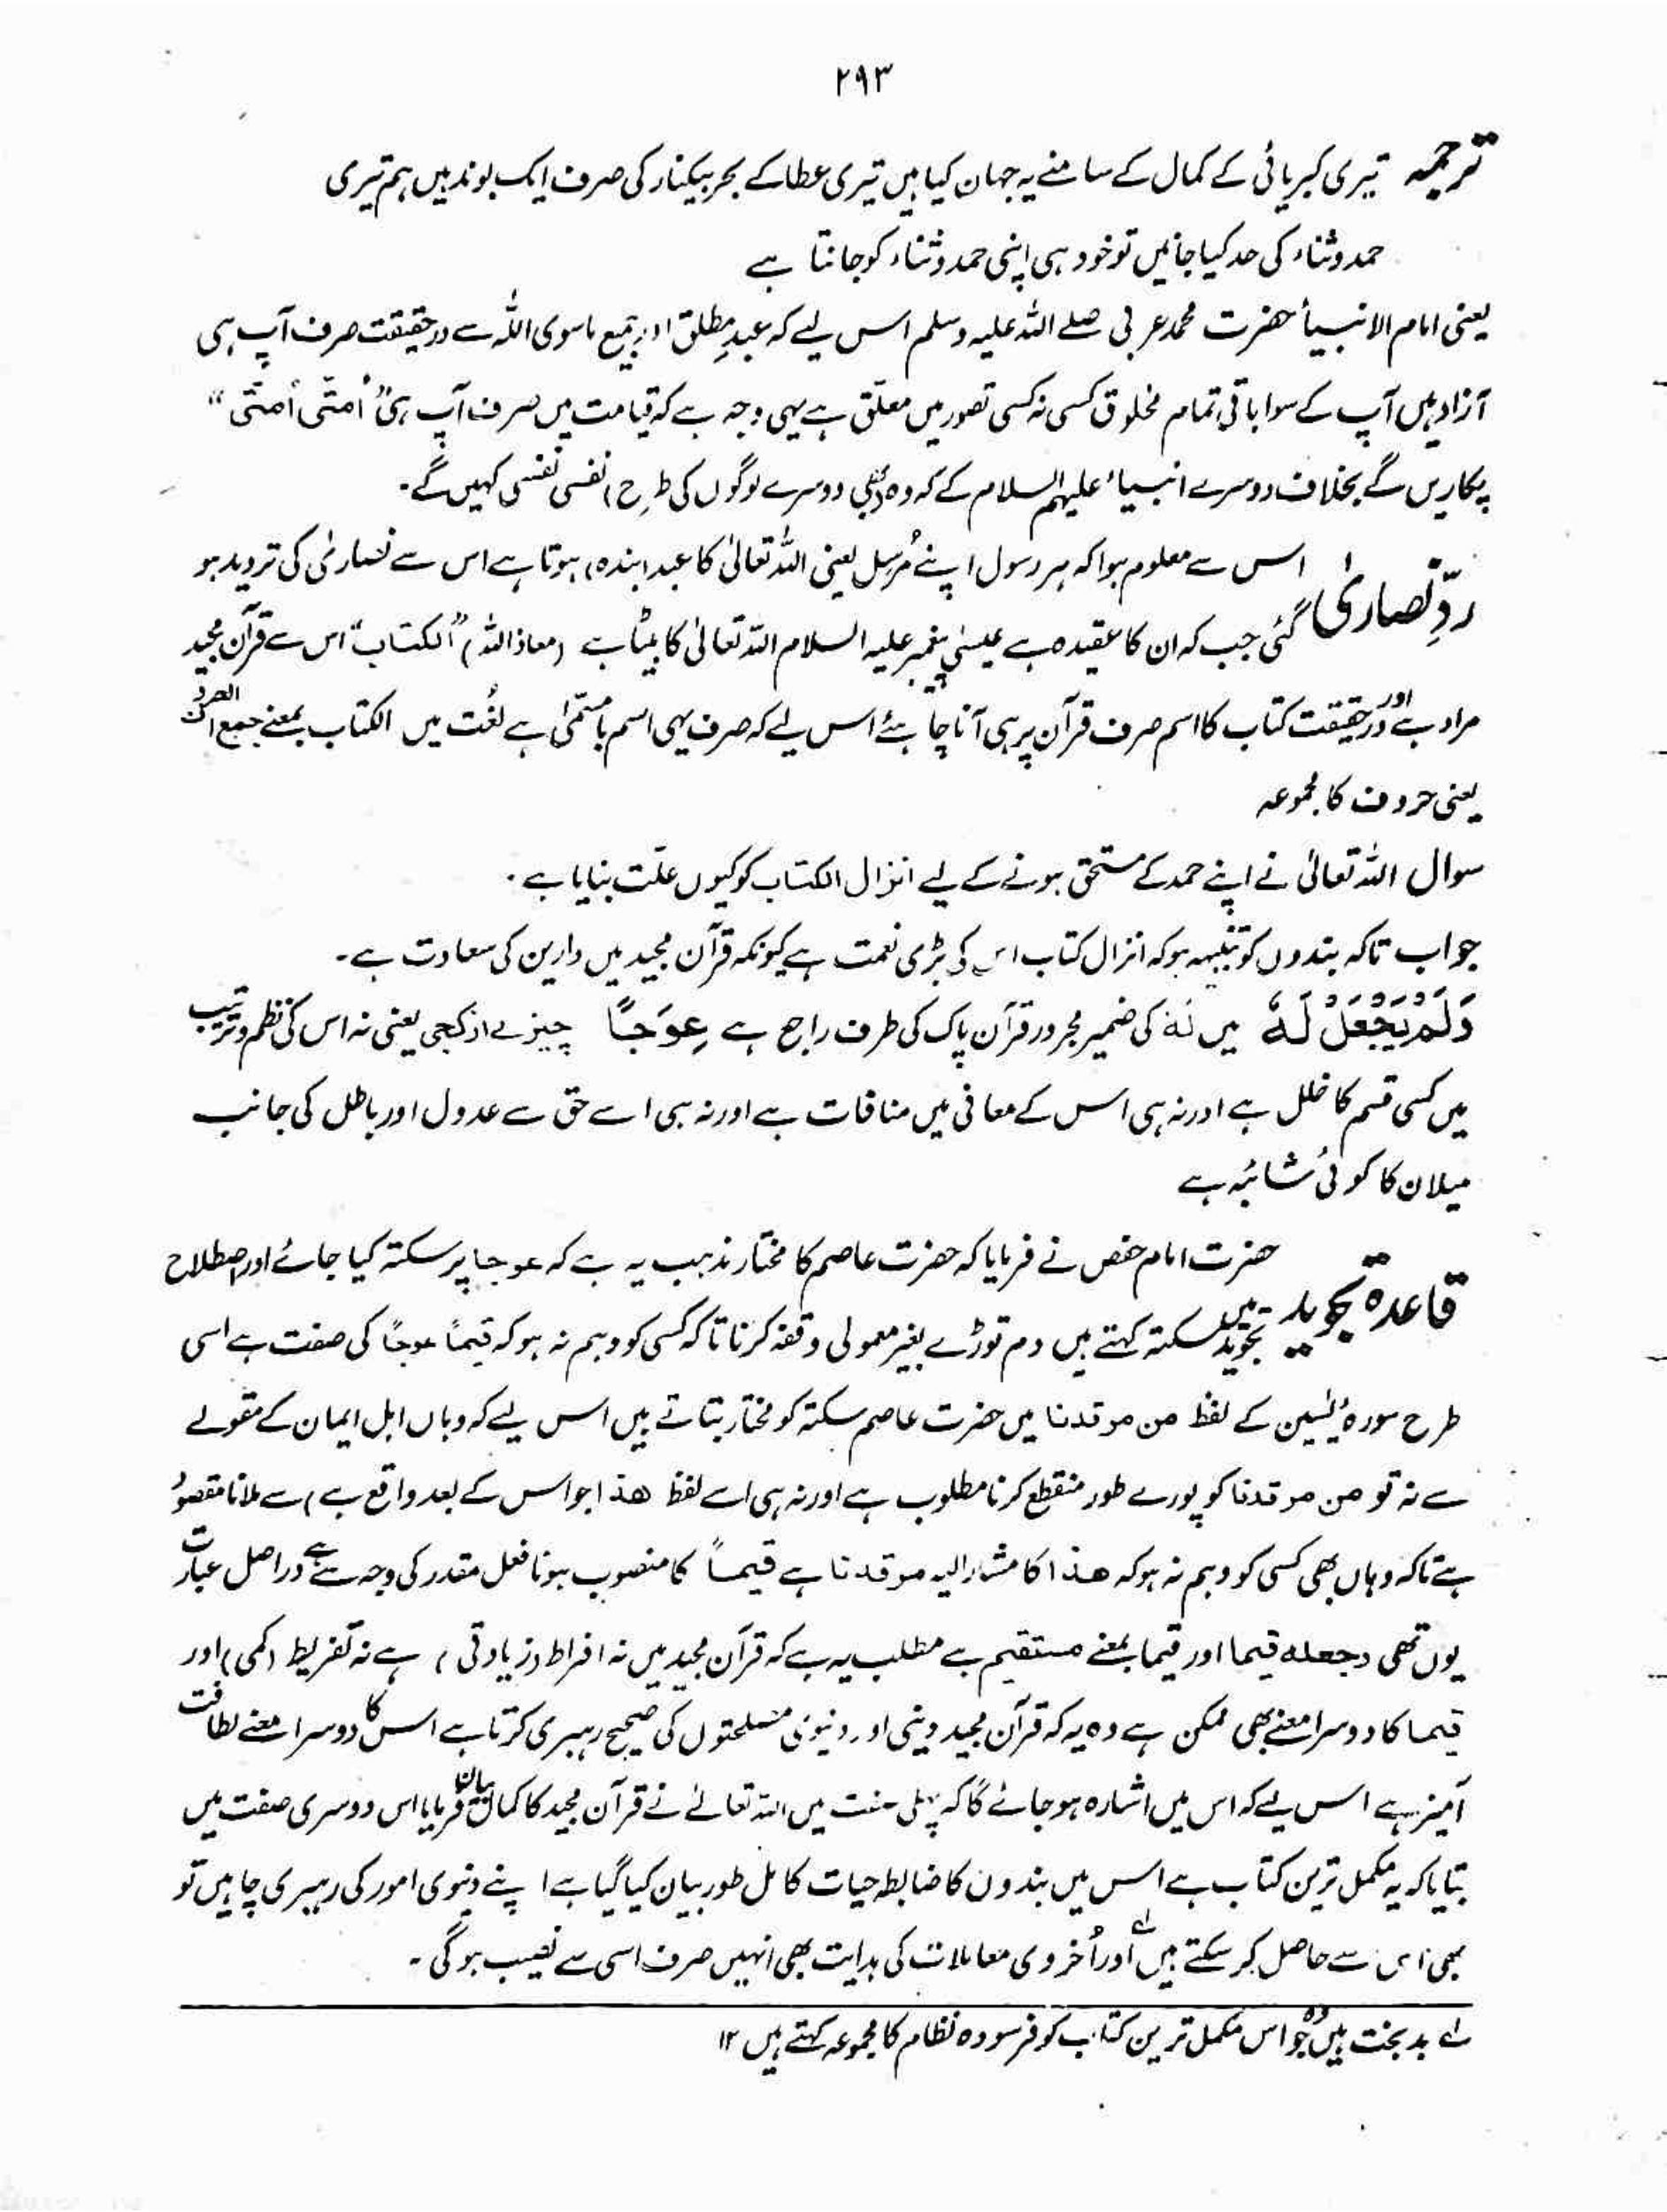 ۲۹۳
ترجمہ تیری کبریائی کے کمال کے سامنے یہ جہان کیا ہیں تیری عطا کے بحر بیکنار کی صرف ایک بوند ہیں ہم تیری
حمد و ثناء کی حد کیا جانیں تو خود ہی اپنی حمد و ثناء کو جانتا ہے
یعنی امام الانبیاء حضرت محمد عربی صلے اللہ علیہ وسلم اس لیے کہ عبدِ مطلق اور جمیع ماسوی اللہ سے درحقیقت صرف آپ ہی
آزاد ہیں آپ کے سوا باقی تمام مخلوق کسی نہ کسی تصور میں معلّق ہے یہی وجہ ہے کہ قیامت میں صرف آپ ہی "اُمتّی اُمتّی"
پکاریں گے بخلاف دوسرے انبیاء علیہم السلام کے کہ وہ بھی دوسرے لوگوں کی طرح نفسی نفسی کہیں گے۔
ردِّ نصاریٰ اس سے معلوم ہوا کہ ہر رسول اپنے مُرسِل یعنی اللہ تعالیٰ کا عبد (بندہ) ہوتا ہے اس سے نصاریٰ کی تردید ہو
گئی جب کہ ان کا عقیدہ ہے عیسیٰ پیغمبر علیہ السلام اللہ تعالیٰ کا بیٹا ہے (معاذ اللہ) "الکتاب" اس سے قرآن مجید
مراد ہے اور درحقیقت کتاب کا اسم صرف قرآن پر ہی آنا چاہئے اس لیے کہ صرف یہی اسم بامسمّیٰ ہے لغُت میں الکتاب بمعنے جمع الحروف
یعنی حروف کا مجموعہ
سوال اللہ تعالیٰ نے اپنے حمد کے مستحق ہونے کے لیے انزال الکتاب کو کیوں علّت بنایا ہے۔
جواب تاکہ بندوں کو تنبیہہ ہو کہ انزال کتاب اس کی بڑی نعمت ہے کیونکہ قرآن مجید میں دارین کی سعادت ہے۔
وَلَمْ يَجْعَلْ لَهُ میں لَهُ کی ضمیر مجرور قرآن پاک کی طرف راجع ہے عِوَجًا چیزے از کجی یعنی نہ اس کی نظم و ترتیب
میں کسی قسم کا خلل ہے اور نہ ہی اس کے معانی میں منافات ہے اور نہ ہی اسے حق سے عدول اور باطل کی جانب
میلان کا کوئی شائبہ ہے
قاعدہ تجوید حضرت امام حفص نے فرمایا کہ حضرت عاصم کا مختار مذہب یہ ہے کہ عوجا پر سکتہ کیا جائے اور اصطلاح
تجوید میں سکتہ کہتے ہیں دم توڑے بغیر معمولی وقفہ کرنا تاکہ کسی کو وہم نہ ہو کہ قیّماً عوجاً کی صفت ہے اسی
طرح سورہ یٰسین کے لفظ من مرقدنا میں حضرت عاصم سکتہ کو مختار بتاتے ہیں اس لیے کہ وہاں اہل ایمان کے مقولے
سے نہ تو من مرقدنا کو پورے طور منقطع کرنا مطلوب ہے اور نہ ہی اسے لفظ ھذا (جو اس کے بعد واقع ہے) سے ملانا مقصود
ہے تاکہ وہاں بھی کسی کو وہم نہ ہو کہ ھذا کا مشار الیہ مرقدنا ہے قیماً کا منصوب ہونا فعل مقدر کی وجہ سے ہے دراصل عبارت
یوں تھی وجعلہ قیما اور قیما بمعنے مستقیم ہے مطلب یہ ہے کہ قرآن مجید میں نہ افراط (زیادتی) ہے نہ تفریط (کمی) اور
قیما کا دوسرا معنے بھی ممکن ہے وہ یہ کہ قرآن مجید دینی اور دنیوی مصلحتوں کی صحیح رہبری کرتا ہے اس کا دوسرا معنے لطافت
آمیز ہے اس لیے کہ اس میں اشارہ ہو جائے گا کہ پہلی صفت میں اللہ تعالےٰ نے قرآن مجید کا کمال بیان فرمایا اس دوسری صفت میں
بتایا کہ یہ مکمل ترین کتاب ہے اس میں بندوں کا ضابطہ حیات کامل طور بیان کیا گیا ہے اپنے دنیوی امور کی رہبری چاہیں تو
بھی اس سے حاصل کر سکتے ہیں لے اور اُخروی معاملات کی ہدایت بھی انہیں صرف اسی سے نصیب ہو گی۔
لے بدبخت ہیں وہ جو اس مکمل ترین کتاب کو فرسودہ نظام کا مجموعہ کہتے ہیں ۱۲